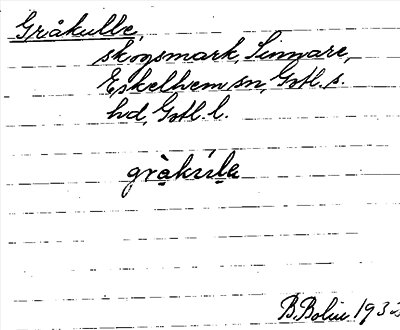 Gråkulle,
skogsmark, Simmare,
Eskelhem sn, Gotl. s.
hd, Gotl. l.
grà̱kúḻe̱
B. Bolin 1933